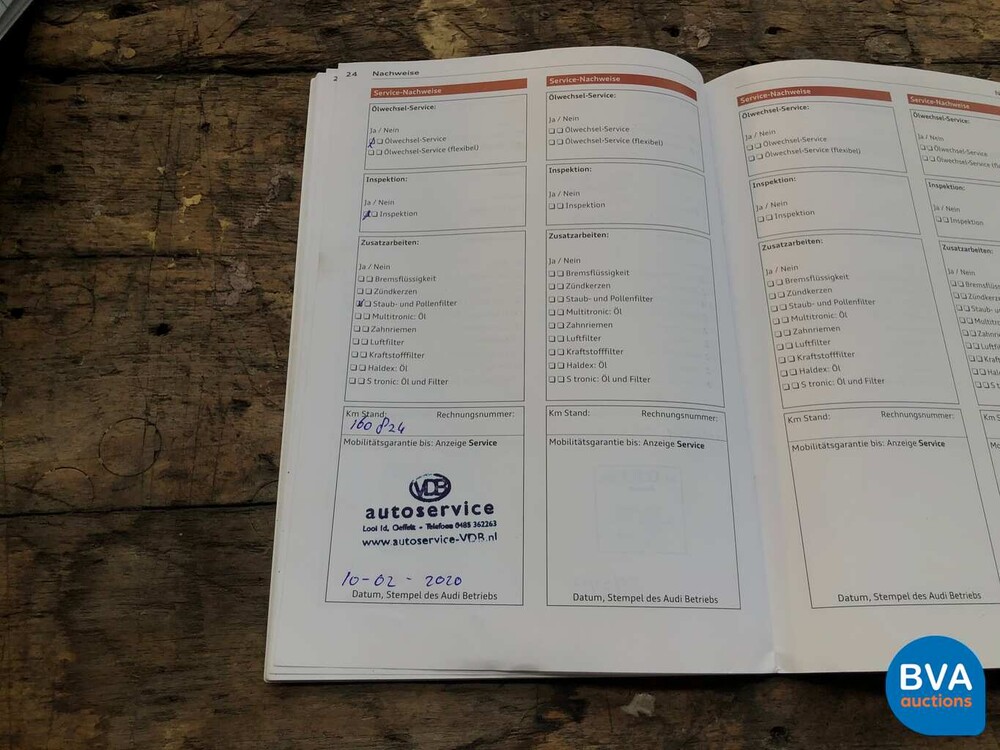 2
24 Nachweise
Service-Nachweise
Ölwechsel-Service:
Ja / Nein
Ölwechsel-Service
Ölwechsel-Service (flexibel)
Inspektion:
Ja / Nein
Inspektion
Zusatzarbeiten:
Ja / Nein
Bremsflüssigkeit
Zündkerzen
Staub- und Pollenfilter
Multitronic: Öl
Zahnriemen
Luftfilter
Kraftstofffilter
Haldex: Öl
S tronic: Öl und Filter
Km Stand: Rechnungsnummer:
160 824
Mobilitätsgarantie bis: Anzeige Service
VDB
autoservice
Looi 1d, Oeffelt - Telefoon 0485 362263
www.autoservice-VDB.nl
10-02-2020
Datum, Stempel des Audi Betriebs
Service-Nachweise
Ölwechsel-Service:
Ja / Nein
Ölwechsel-Service
Ölwechsel-Service (flexibel)
Inspektion:
Ja / Nein
Inspektion
Zusatzarbeiten:
Ja / Nein
Bremsflüssigkeit
Zündkerzen
Staub- und Pollenfilter
Multitronic: Öl
Zahnriemen
Luftfilter
Kraftstofffilter
Haldex: Öl
S tronic: Öl und Filter
Km Stand: Rechnungsnummer:
Mobilitätsgarantie bis: Anzeige Service
Datum, Stempel des Audi Betriebs
Service-Nachweise
Ölwechsel-Service:
Ja / Nein
Ölwechsel-Service
Ölwechsel-Service (flexibel)
Inspektion:
Ja / Nein
Inspektion
Zusatzarbeiten:
Ja / Nein
Bremsflüssigkeit
Zündkerzen
Staub- und Pollenfilter
Multitronic: Öl
Zahnriemen
Luftfilter
Kraftstofffilter
Haldex: Öl
S tronic: Öl und Filter
Km Stand: Rechnungsnummer:
Mobilitätsgarantie bis: Anzeige Service
Datum, Stempel des Audi Betriebs
Service-Nachweise
Ölwechsel-Service:
Ja / Nein
Ölwechsel-Service
Ölwechsel-Service
Inspektion:
Ja / Nein
Inspektion
Zusatzarbeiten:
Ja / Nein
BVA
auctions